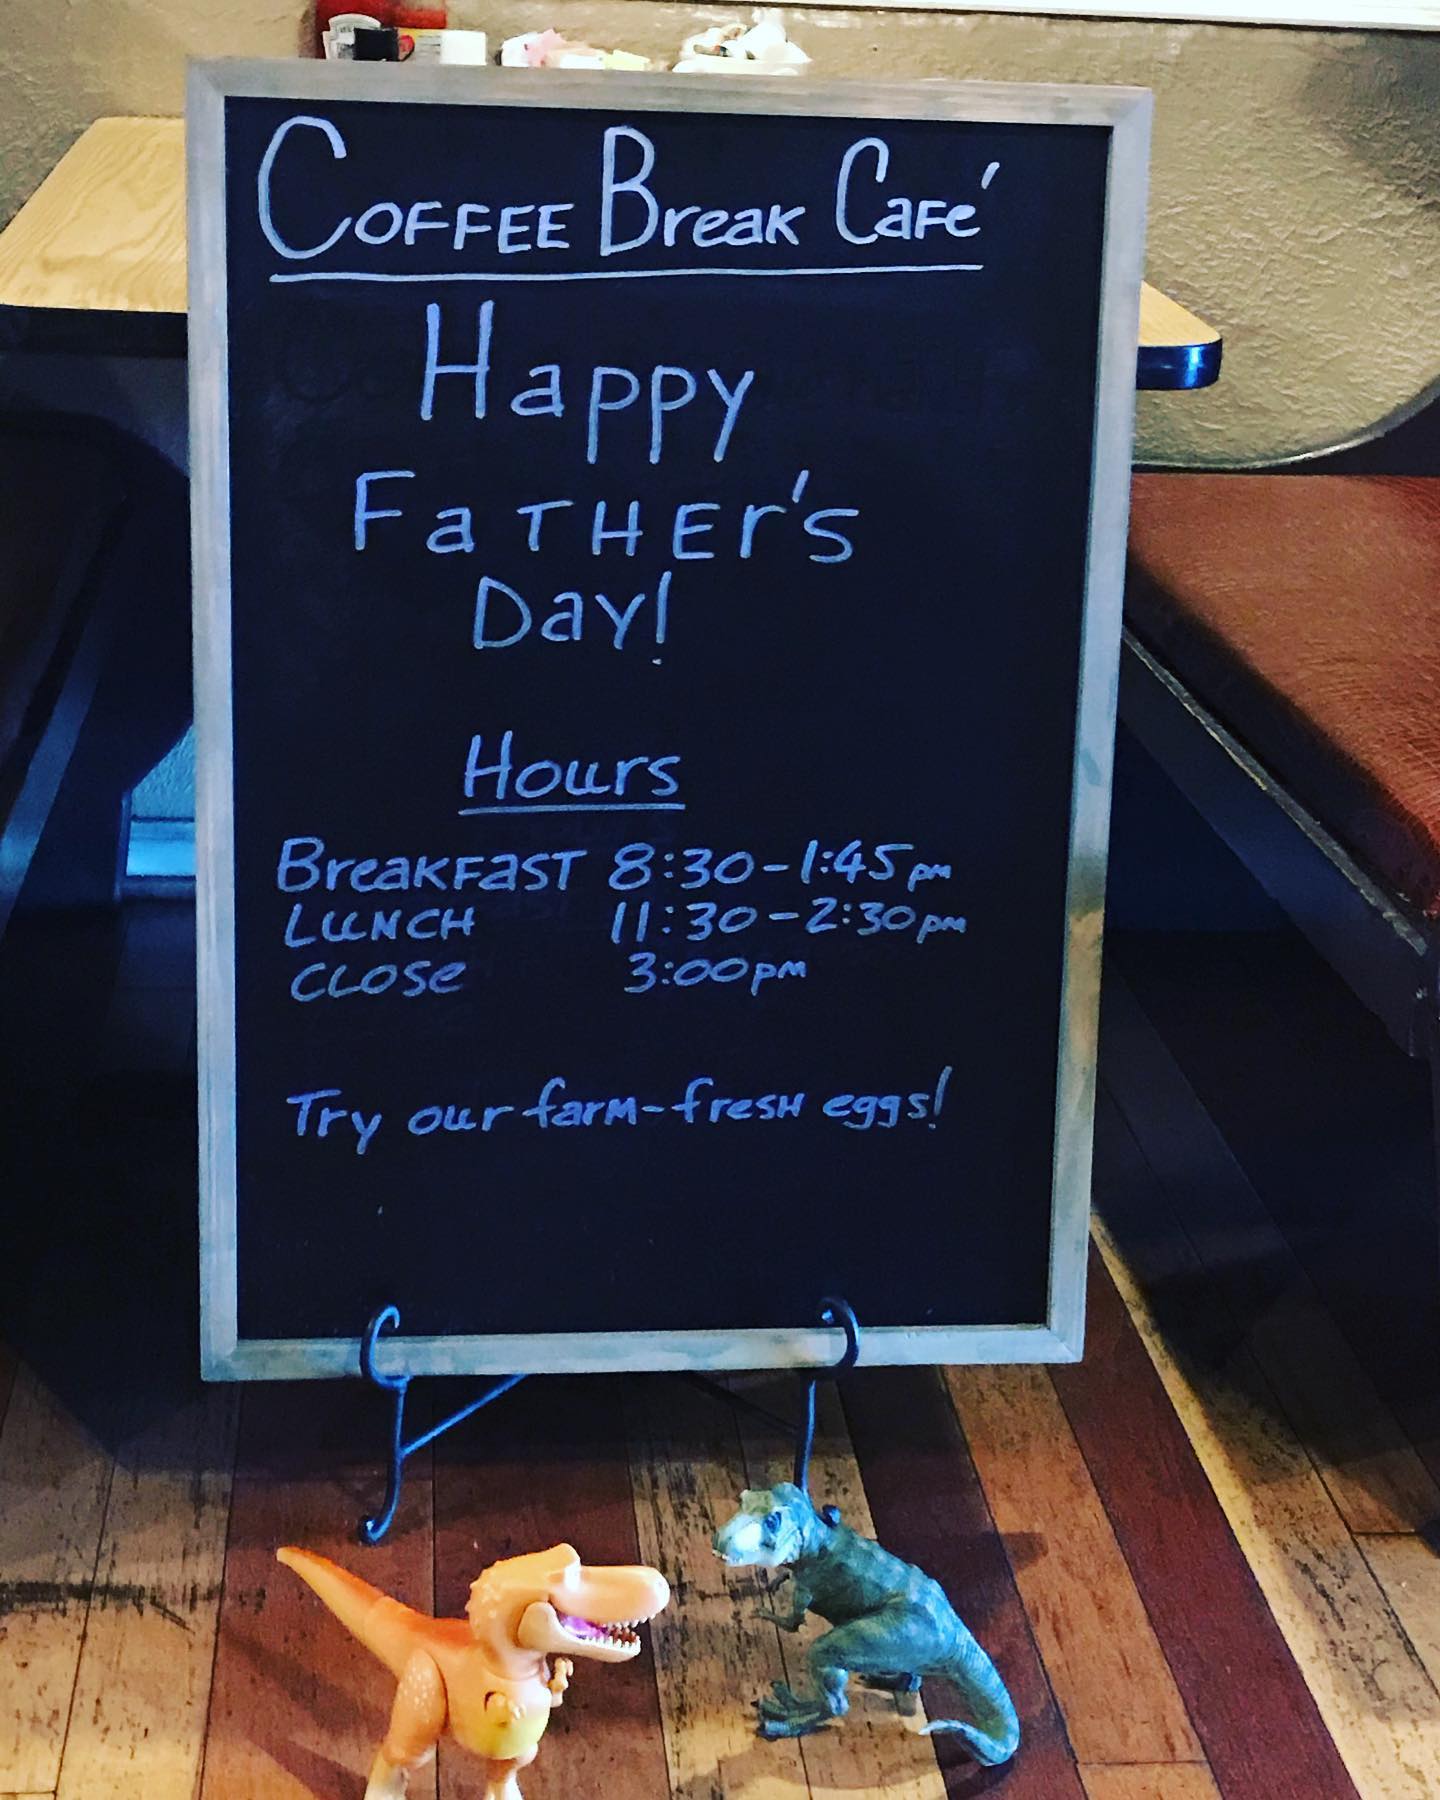 Coffee Break Café
Happy
Father's
Day!
Hours
Breakfast 8:30-1:45pm
Lunch 11:30-2:30pm
Close 3:00pm
Try our farm-fresh eggs!